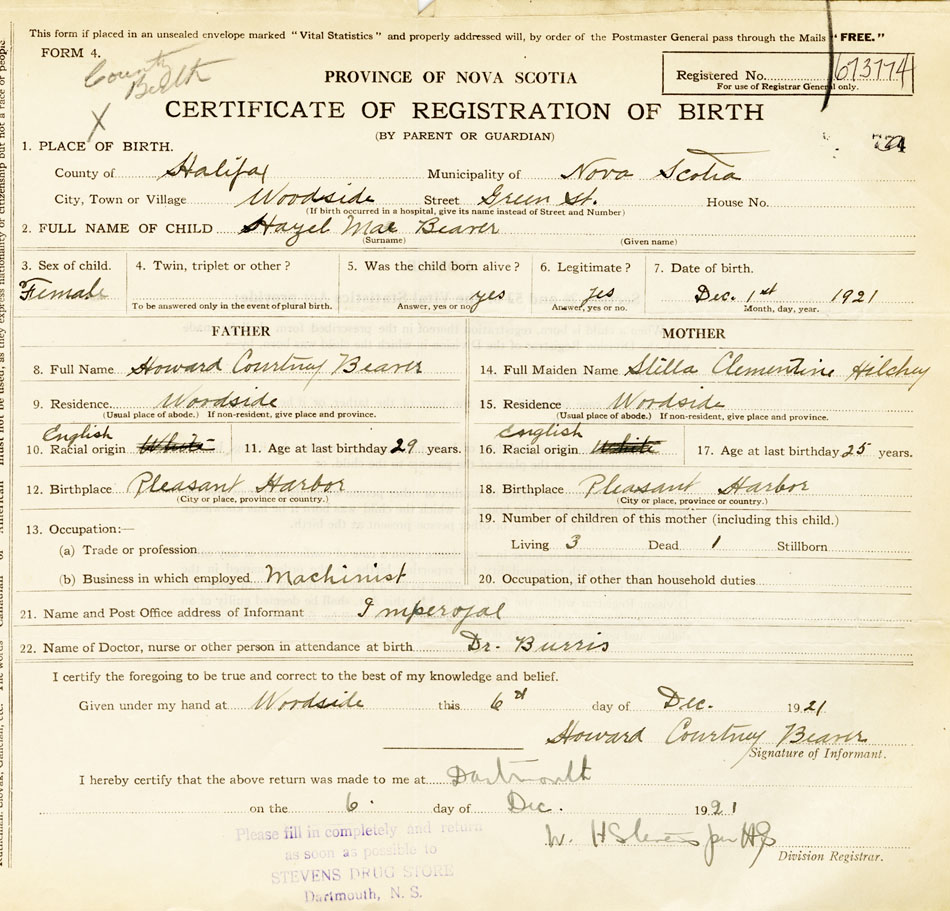 This form if placed in an unsealed envelope marked "Vital Statistics" and properly addressed will, by order of the Postmaster General pass through the Mails "FREE."
FORM 4.
County
PROVINCE OF NOVA SCOTIA
Registered No. 673774
For use of Registrar General only.
CERTIFICATE OF REGISTRATION OF BIRTH
X
(BY PARENT OR GUARDIAN)
1. PLACE OF BIRTH.
County of Halifax Municipality of Nova Scotia
City, Town or Village Woodside Street Green St. House No.
(If birth occurred in a hospital, give its name instead of Street and Number)
2. FULL NAME OF CHILD Hazel Mae Beaver
(Surname) (Given name)
3. Sex of child. 4. Twin, triplet or other? 5. Was the child born alive? 6. Legitimate? 7. Date of birth.
Female yes yes Dec. 1st 1921
To be answered only in the event of plural birth. Answer, yes or no Answer, yes or no. Month, day, year.
FATHER MOTHER
8. Full Name Howard Courtney Beaver 14. Full Maiden Name Stilla Clementine Hilchey
9. Residence. Woodside 15. Residence Woodside
(Usual place of abode.) If non-resident, give place and province. (Usual place of abode.) If non-resident, give place and province.
English English
10. Racial origin White 11. Age at last birthday 29 years. 16. Racial origin White 17. Age at last birthday 25 years.
12. Birthplace Pleasant Harbor 18. Birthplace Pleasant Harbor
(City or place, province or country.) (City or place, province or country.)
13. Occupation:— 19. Number of children of this mother (including this child.)
(a) Trade or profession Living 3 Dead 1 Stillborn
(b) Business in which employed Machinist 20. Occupation, if other than household duties
21. Name and Post Office address of Informant Imperoyal
22. Name of Doctor, nurse or other person in attendance at birth Dr. Burris
I certify the foregoing to be true and correct to the best of my knowledge and belief.
Given under my hand at Woodside this 6th day of Dec. 1921
Howard Courtney Beaver
Signature of Informant.
I hereby certify that the above return was made to me at Dartmouth
on the 6. day of Dec. 1921
W. H Stevens per
Division Registrar.
Please fill in completely and return
as soon as possible to
STEVENS DRUG STORE
Dartmouth, N. S.